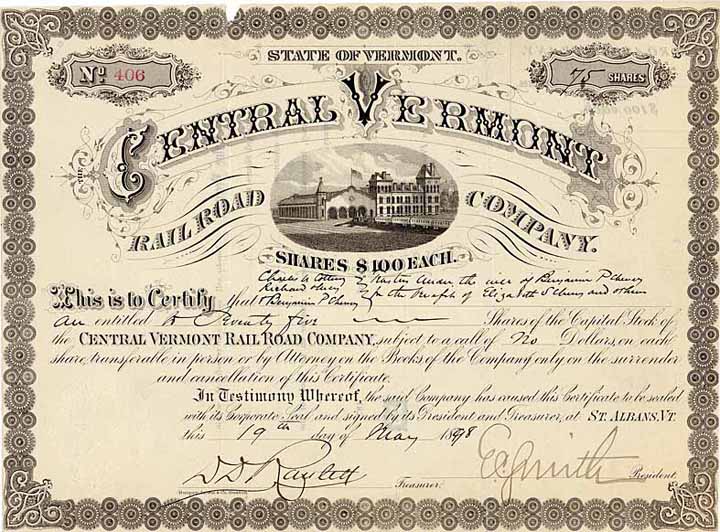 STATE OF VERMONT.
No. 406
75 SHARES
CENTRAL VERMONT
RAIL ROAD COMPANY.
SHARES $100 EACH.
Charles W Trustees under the will of Benjamin P Cheney
Richard Olney for the benefit of Elizabeth S Cheney and others
This is to Certify that & Benjamin P Cheney
are entitled to Seventy five Shares of the Capital Stock of
the CENTRAL VERMONT RAIL ROAD COMPANY, subject to a call of No Dollars, on each
share, transferable in person or by Attorney on the Books of the Company only on the surrender
and cancellation of this Certificate.
In Testimony Whereof, the said Company has caused this Certificate to be sealed
with its Corporate Seal and signed by its President and Treasurer, at ST. ALBANS, VT.
this 19th day of May 1898
Treasurer. President.